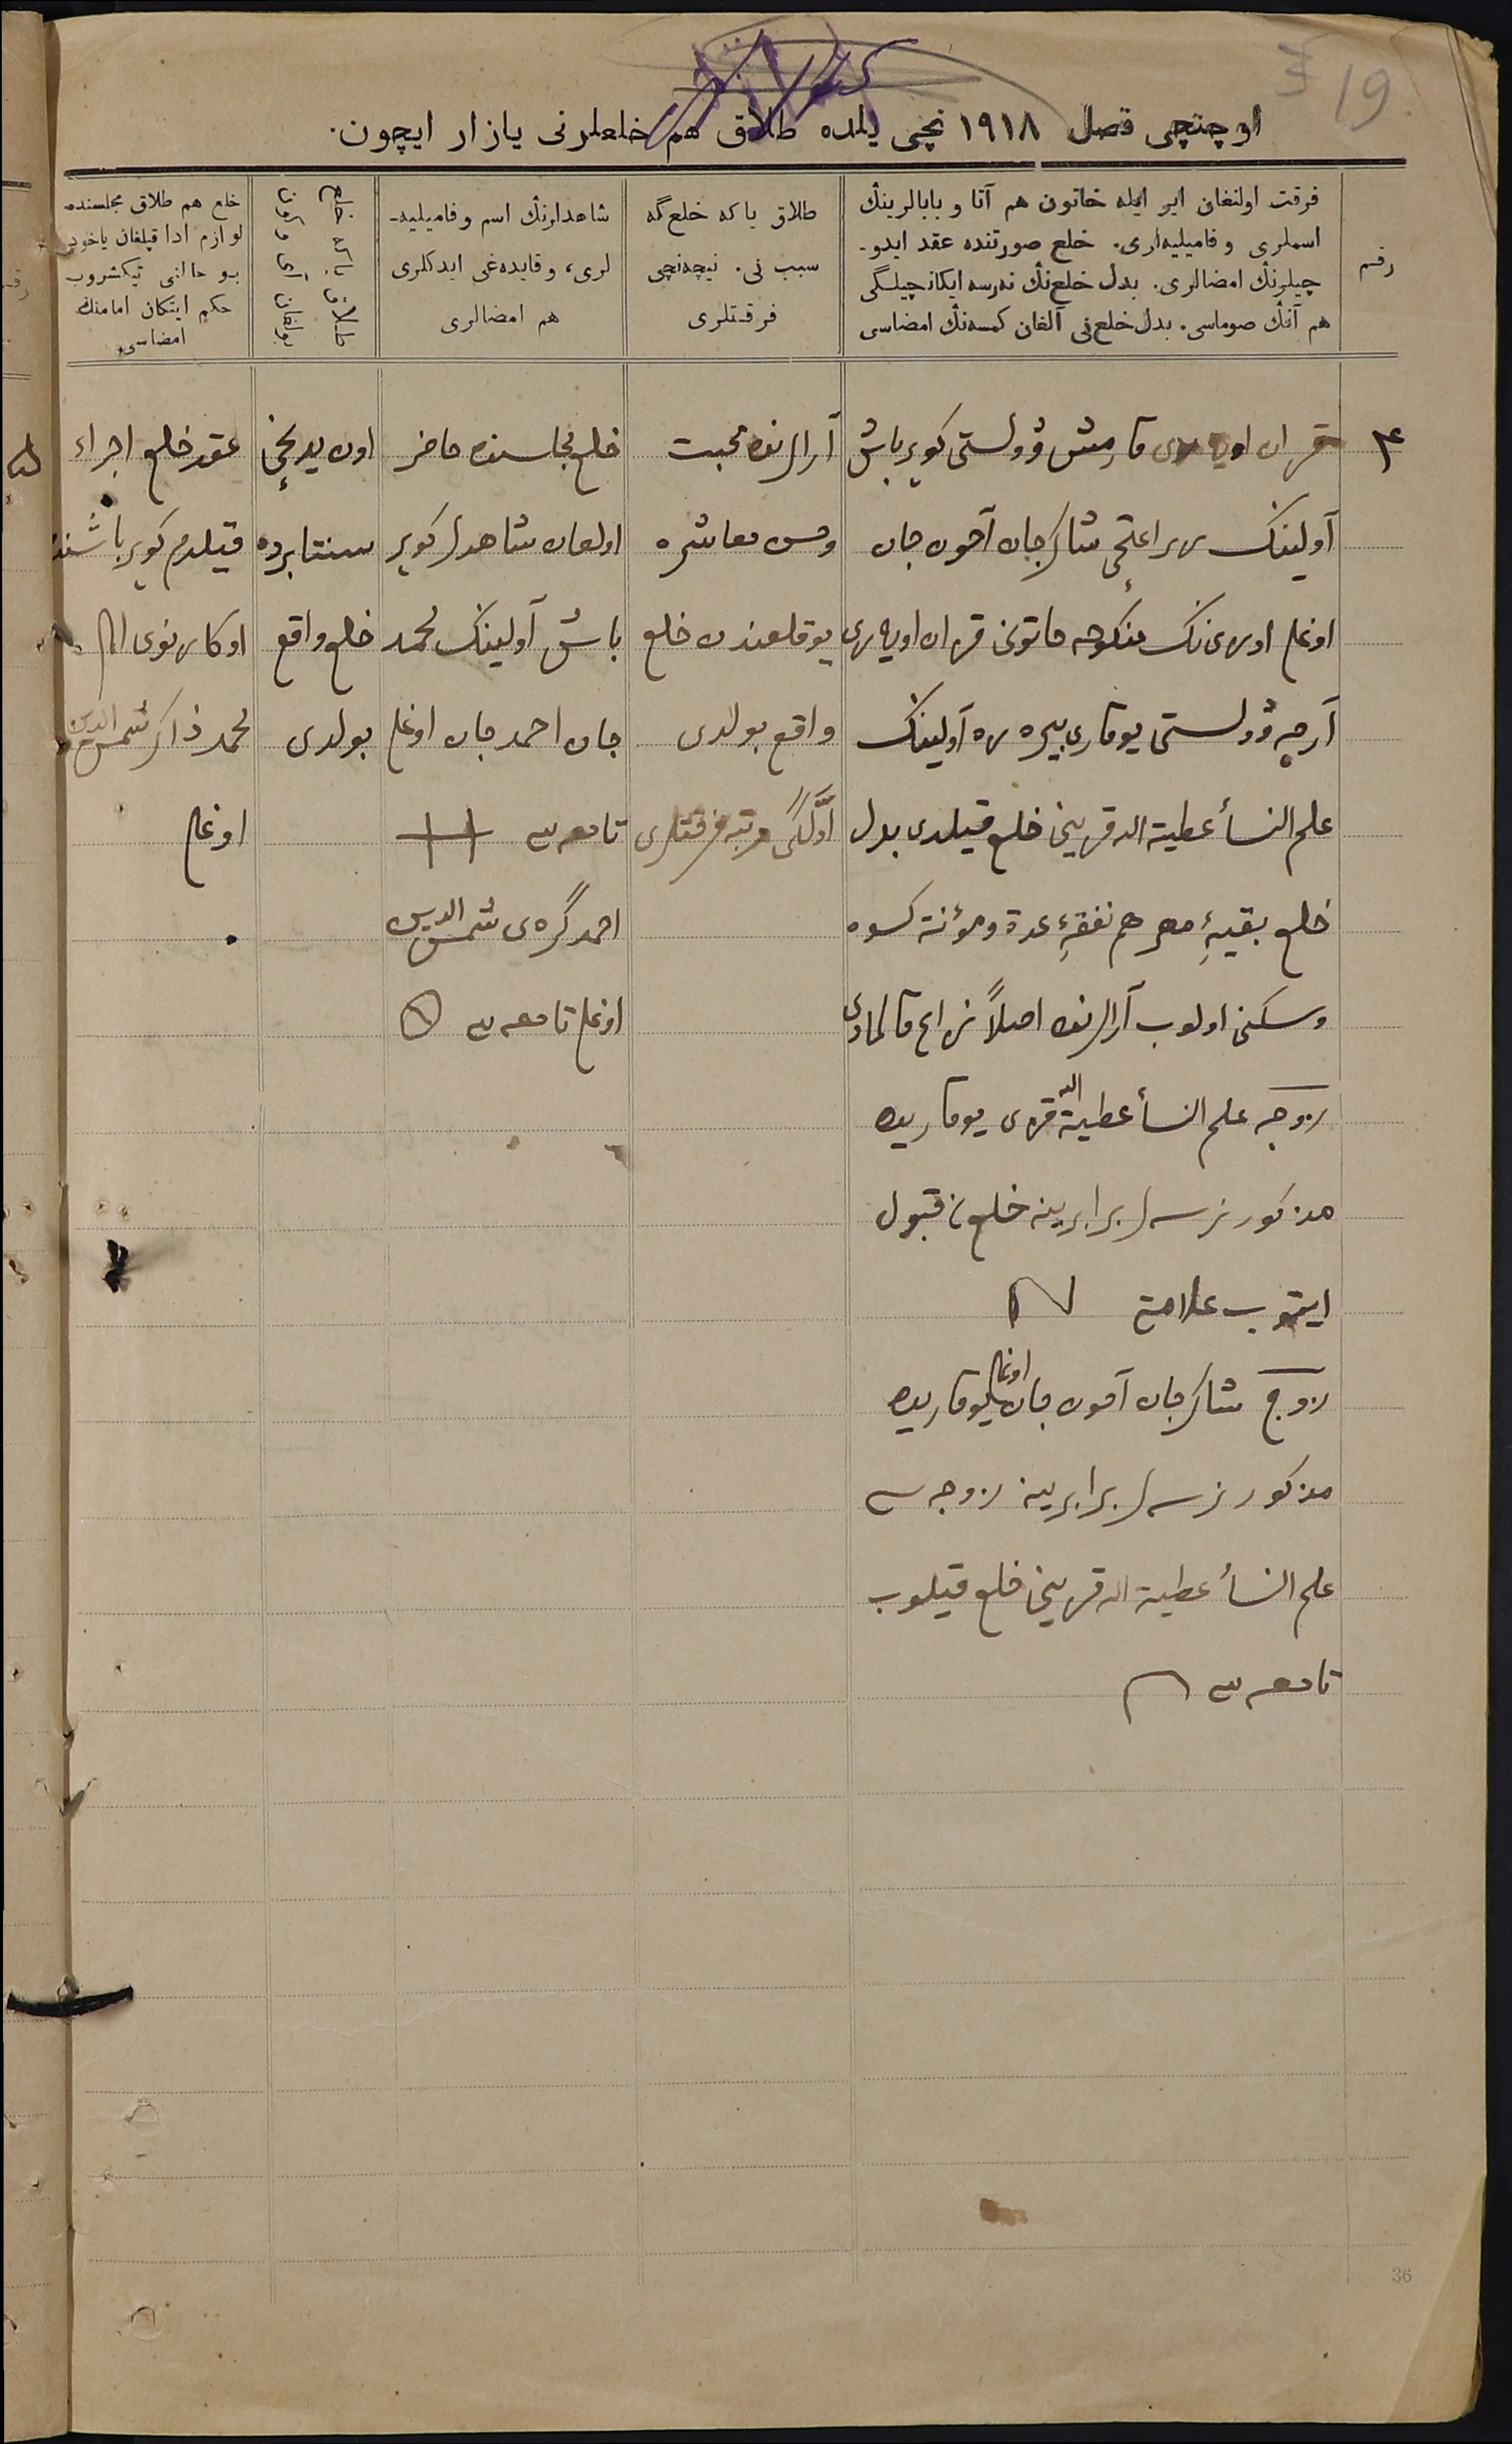 19
اوچنچی فصل ۱۹۱۸ نچی یلده طلاق هم خلعلرنی یازار ایچون.
رقم
فرقت اولنغان ایر ایله خاتون هم آتا و بابالرینڭ
اسملری و فامیلیەلری. خلع صورتنده عقد ایدو-
چیلرنڭ امضالری. بدل خلع‌نڭ نەرسه ایکانچیلگی
هم آنڭ صوماسی. بدل خلع‌نی آلغان کمسەنڭ امضاسی
طلاق یا که خلع‌گه
سبب نی. نیچەنچی
فرقتلری
شاهدلرنڭ اسم و فامیلیە-
لری، و قایدەغی ایدکلری
هم امضالری
طلاق یا که خلع
بولغان آی و کون
خلع هم طلاق مجلسنده
لوازم ادا قیلغان یاخود
بو حالنی تیکشروب
حکم ایتکان امامنڭ
امضاسی
۴
قزان اویازی مامش وولستی کویر باش
آولینڭ شاکرجان آخون جان
اوغلی منکوحه خاتونی قزان اویازی
آرچه وولستی یوقاری بیره زه آولینڭ
علم النسأ عطیة الله قزینی خلع قیلدی بدل
خلع بقیهٔ مهر هم نفقهٔ عدة و مؤنة کسوه
وسکنی اولوب آرالرنده اصلاً نزاع قالمادی
زوجه علم النسأ عطیة الله قزی یوقاریده
مذکور نرسه لر برابرینه خلع نی قبول
ایتوب علامتم
زوج شاکرجان آخون جان اوغلی یوقاریده
مذکور نرسه لر برابرینه زوجه سی
علم النسأ عطیة الله قزینی خلع قیلوب
تامغه سی
آرالرنده محبت
وحسن معاشره
یوقلغندن خلع
واقع بولدی
اوّلگی مرتبه فرقتلری
خلع مجلسنده حاضر
اولغان شاهدلر کویر
باش آولینڭ محمد
جان احمدجان اوغلی
تامغه سی
احمدگرەی شمس الدین
اوغلی تامغه سی
اون یدنچی
سنتابرده
خلع واقع
بولدی
عقد خلع اجراء
قیلدم کویر باشنڭ
محمد ذاکر شمس الدین
اوغلی
36